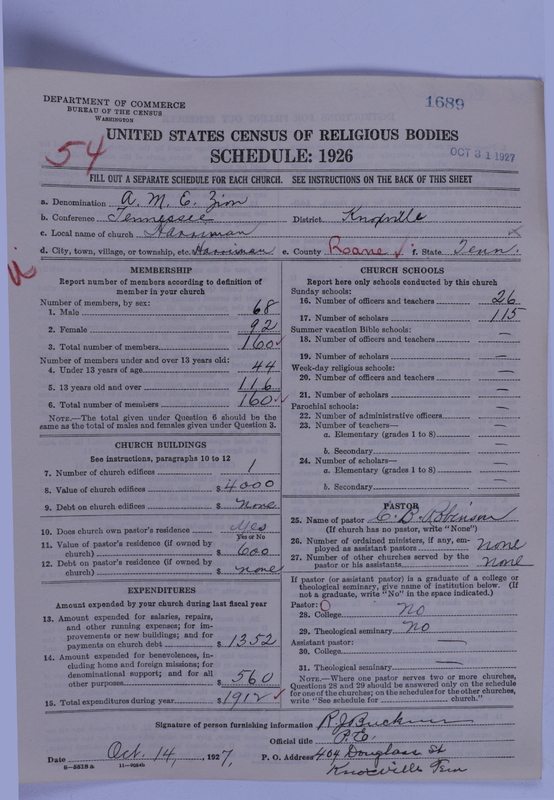 DEPARTMENT OF COMMERCE
BUREAU OF THE CENSUS
WASHINGTON
1689
54
UNITED STATES CENSUS OF RELIGIOUS BODIES
SCHEDULE: 1926
OCT 31 1927
FILL OUT A SEPARATE SCHEDULE FOR EACH CHURCH. SEE INSTRUCTIONS ON THE BACK OF THIS SHEET
a. Denomination A. M. E. Zion
b. Conference Tennessee District Knoxville
c. Local name of church Harriman
d. City, town, village, or township, etc. Harriman e. County Roane f. State Tenn.
MEMBERSHIP
Report number of members according to definition of member in your church
Number of members, by sex:
1. Male 68
2. Female 92
3. Total number of members 160
Number of members under and over 13 years old:
4. Under 13 years of age 44
5. 13 years old and over 116
6. Total number of members 160
NOTE.—The total given under Question 6 should be the same as the total of males and females given under Question 3.
CHURCH BUILDINGS
See instructions, paragraphs 10 to 12
7. Number of church edifices 1
8. Value of church edifices $4000
9. Debt on church edifices $ none
10. Does church own pastor's residence Yes
Yes or No
11. Value of pastor's residence (if owned by church) $ 600
12. Debt on pastor's residence (if owned by church) $ none
EXPENDITURES
Amount expended by your church during last fiscal year
13. Amount expended for salaries, repairs, and other running expenses; for improvements or new buildings; and for payments on church debt $ 1352
14. Amount expended for benevolences, including home and foreign missions; for denominational support; and for all other purposes $ 560
15. Total expenditures during year $ 1912
CHURCH SCHOOLS
Report here only schools conducted by this church
Sunday schools:
16. Number of officers and teachers 26
17. Number of scholars 115
Summer vacation Bible schools:
18. Number of officers and teachers —
19. Number of scholars —
Week-day religious schools:
20. Number of officers and teachers —
21. Number of scholars —
Parochial schools:
22. Number of administrative officers —
23. Number of teachers—
a. Elementary (grades 1 to 8) —
b. Secondary —
24. Number of scholars—
a. Elementary (grades 1 to 8) —
b. Secondary —
PASTOR
25. Name of pastor C. B. Robinson
(If church has no pastor, write "None")
26. Number of ordained ministers, if any, employed as assistant pastors none
27. Number of other churches served by the pastor or his assistants none
If pastor (or assistant pastor) is a graduate of a college or theological seminary, give name of institution below. (If not a graduate, write "No" in the space indicated.)
Pastor:
28. College No
29. Theological seminary No
Assistant pastor:
30. College —
31. Theological seminary —
NOTE.—Where one pastor serves two or more churches, Questions 28 and 29 should be answered only on the schedule for one of the churches; on the schedules for the other churches, write "See schedule for church."
Signature of person furnishing information R. J. Buckner
Official title P. E.
Date Oct. 14, 1927. P. O. Address 404 Douglass St
Knoxville Ten
8—5518a